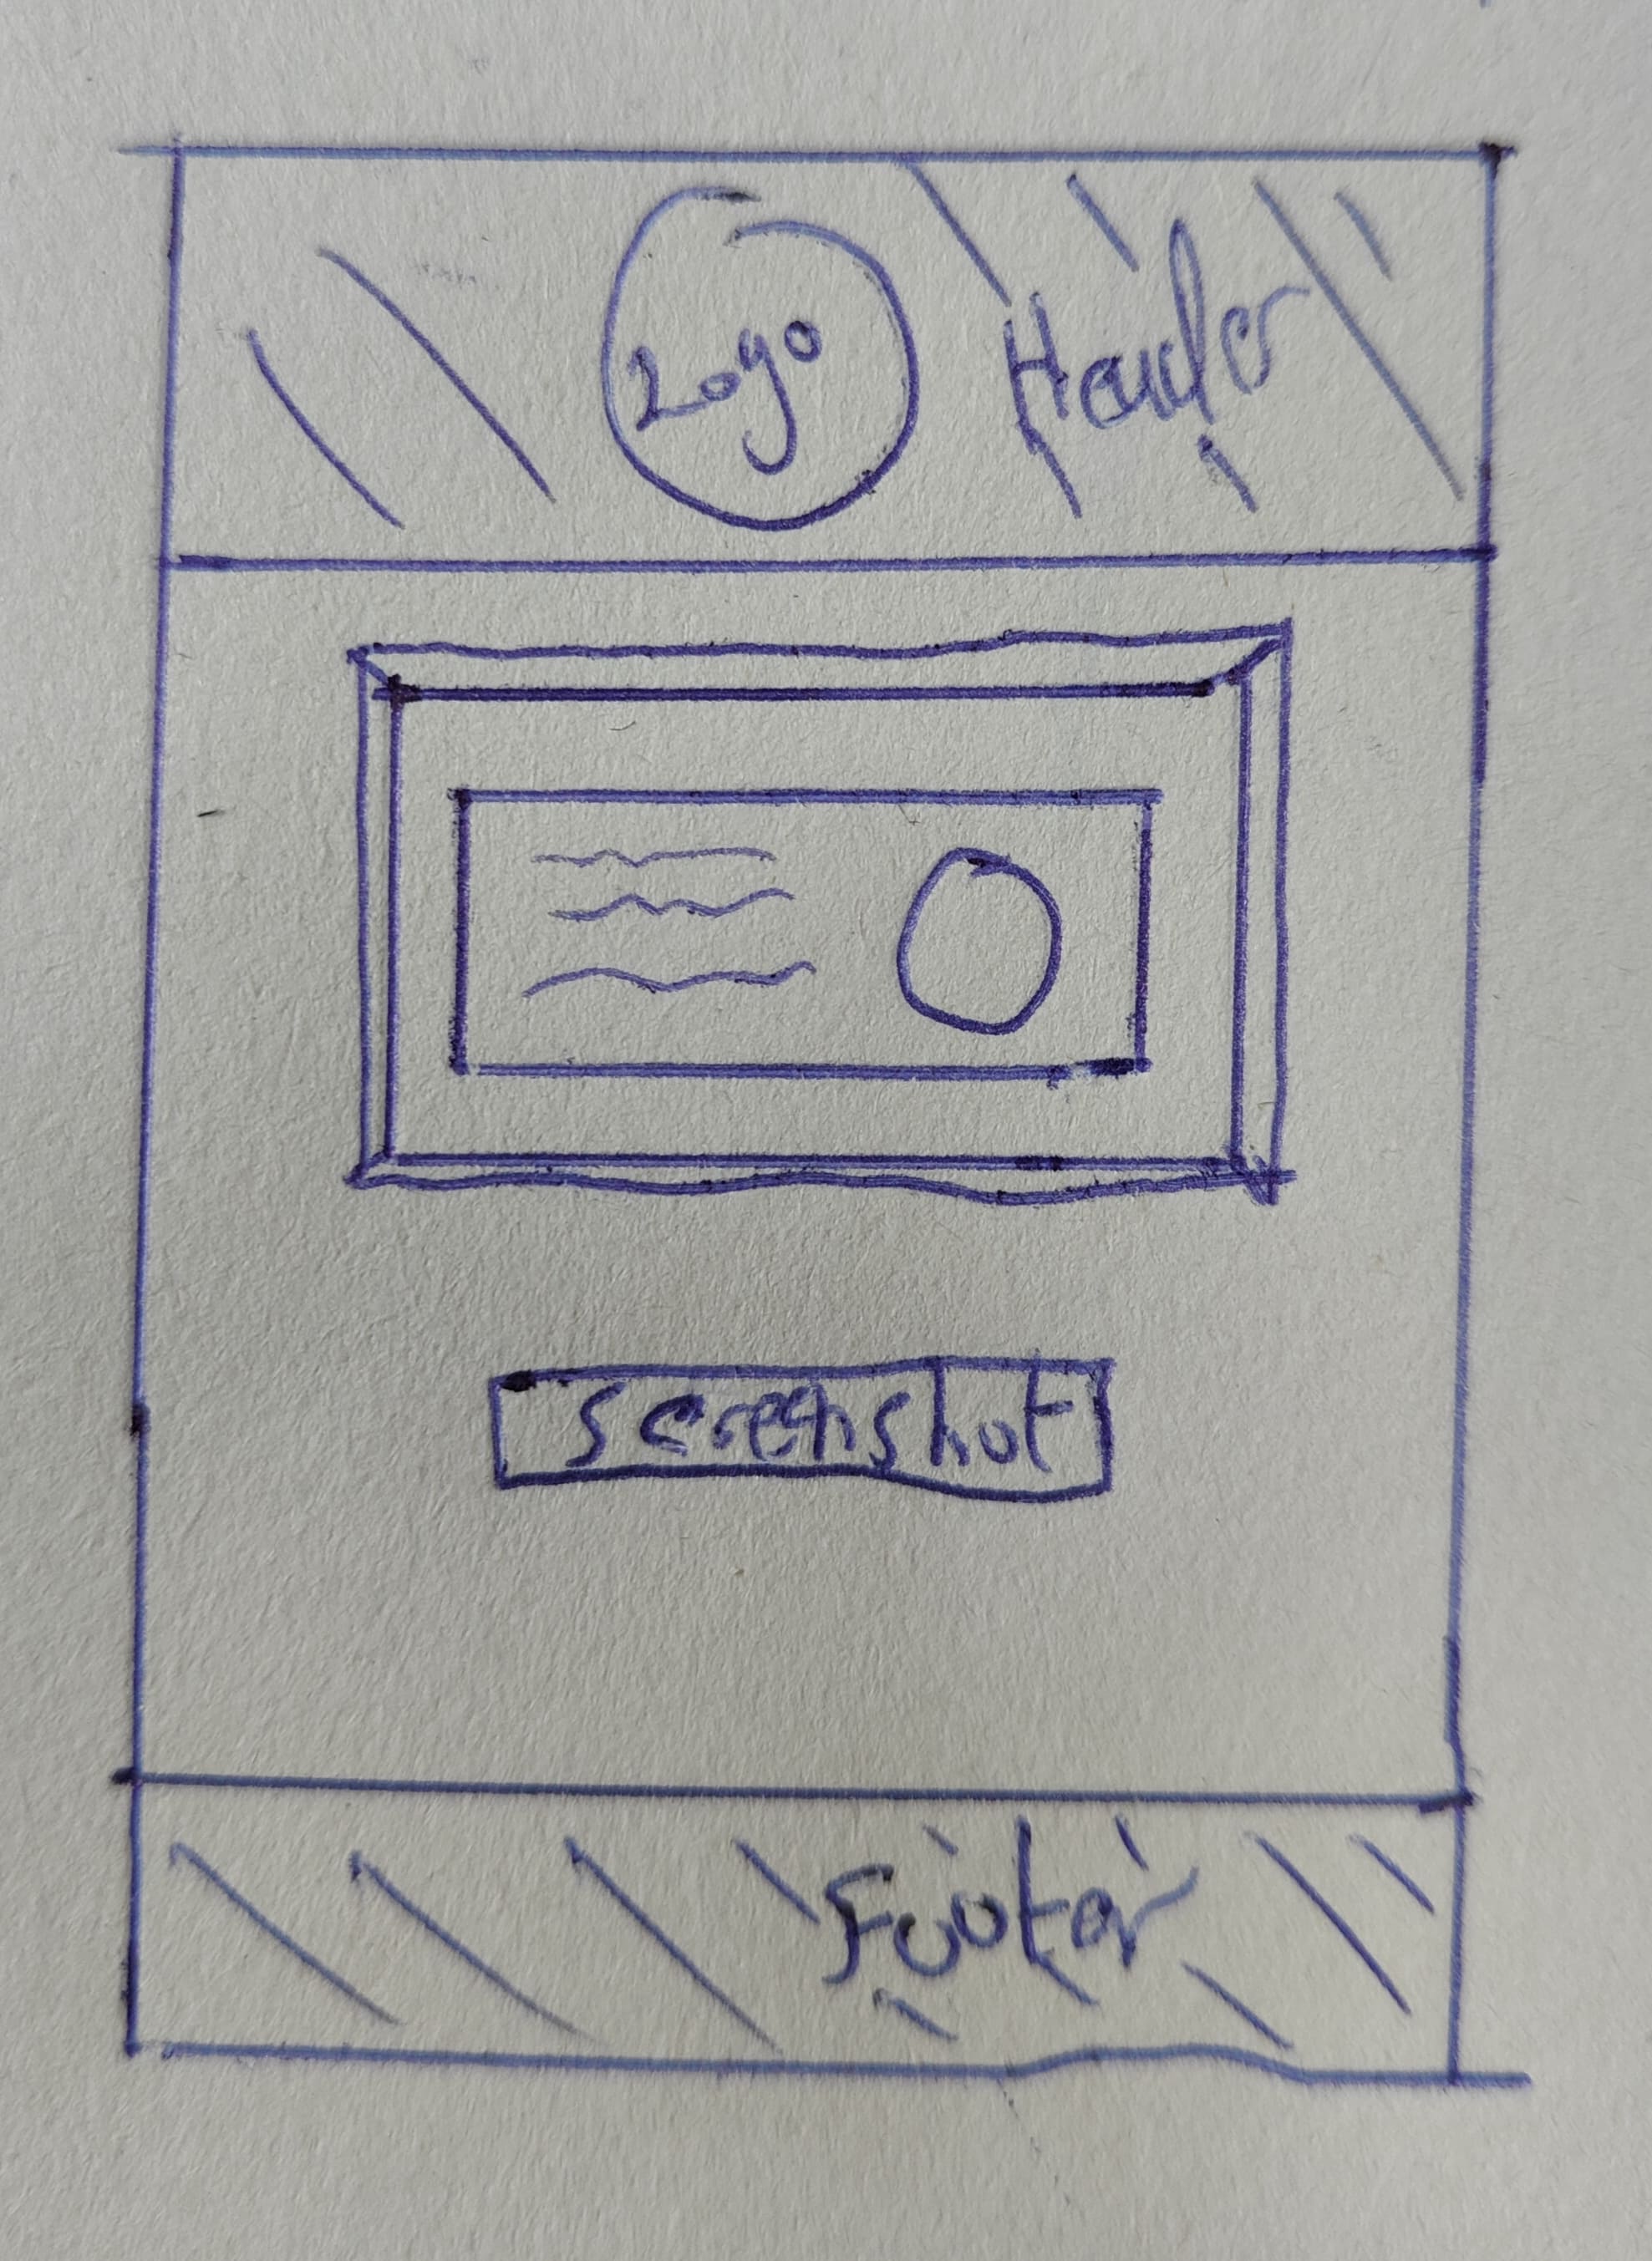 Logo
Header
Screenshot
Footer